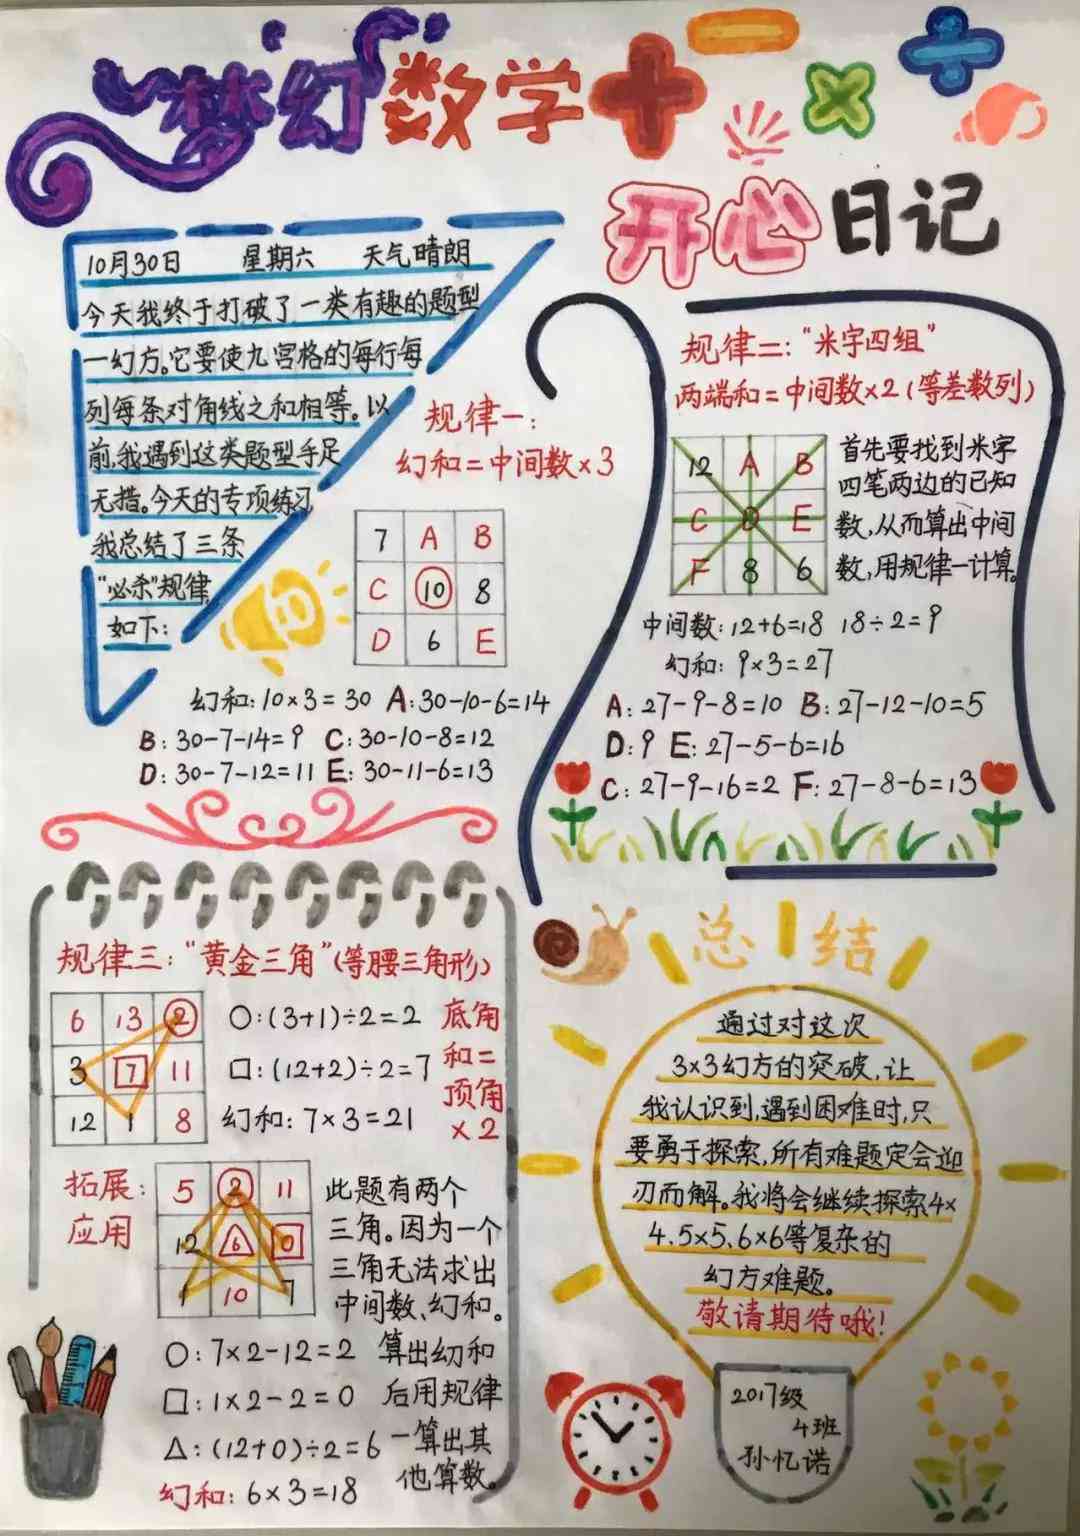 梦幻数学
开心日记
10月30日 星期六 天气晴朗
今天我终于打破了一类有趣的题型
一幻方。它要使九宫格的每行每
列每条对角线之和相等。以
前,我遇到这类题型手足
无措。今天的专项练习
我总结了三条
“必杀”规律,
如下:
规律一:
幻和=中间数×3
7 A B
C 10 8
D 6 E
幻和:10×3=30 A:30-10-6=14
B:30-7-14=9 C:30-10-8=12
D:30-7-12=11 E:30-11-6=13
规律二:“米字四组”
两端和=中间数×2(等差数列)
12 A B
C D E
F 8 6
首先要找到米字
四笔两边的已知
数,从而算出中间
数,用规律一计算。
中间数:12+6=18 18÷2=9
幻和:9×3=27
A:27-9-8=10 B:27-12-10=5
D:9 E:27-5-6=16
C:27-9-16=2 F:27-8-6=13
规律三:“黄金三角”(等腰三角形)
6 13 2
3 7 11
12 1 8
○:(3+1)÷2=2
□:(12+2)÷2=7
幻和:7×3=21
底角
和=
顶角
×2
拓展:
应用
5 2 11
12 6 0
1 10 7
此题有两个
三角。因为一个
三角无法求出
中间数、幻和。
○:7×2-12=2 算出幻和
□:1×2-2=0 后用规律
△:(12+0)÷2=6 一算出其
幻和:6×3=18 他算数。
总结
通过对这次
3×3幻方的突破,让
我认识到,遇到困难时,只
要勇于探索,所有难题定会迎
刃而解。我将会继续探索4×
4.5×5、6×6等复杂的
幻方难题。
敬请期待哦!
2017级
4班
孙忆诺